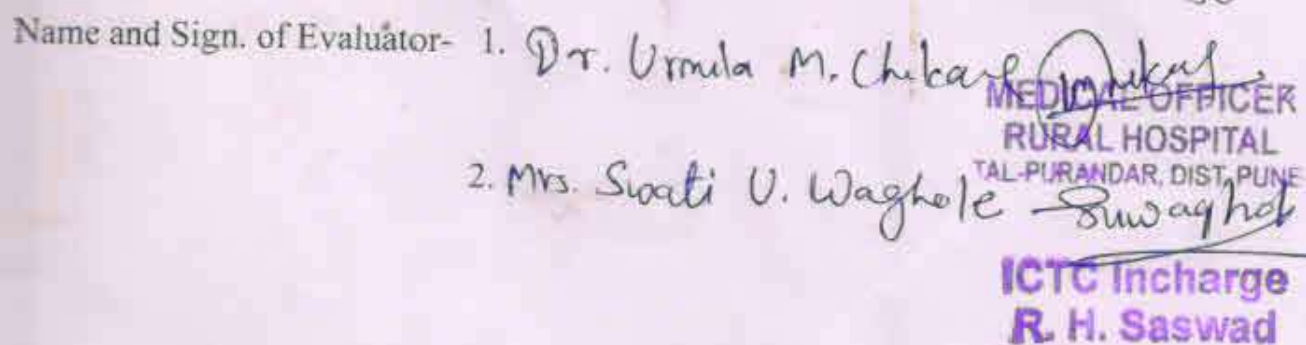 Name and Sign. of Evaluator- 1. Dr. Urmula M. Chikane
MEDICAL OFFICER
RURAL HOSPITAL
TAL-PURANDAR, DIST, PUNE
2. Mrs. Swati U. Waghole Suwaghol
ICTC Incharge
R. H. Saswad